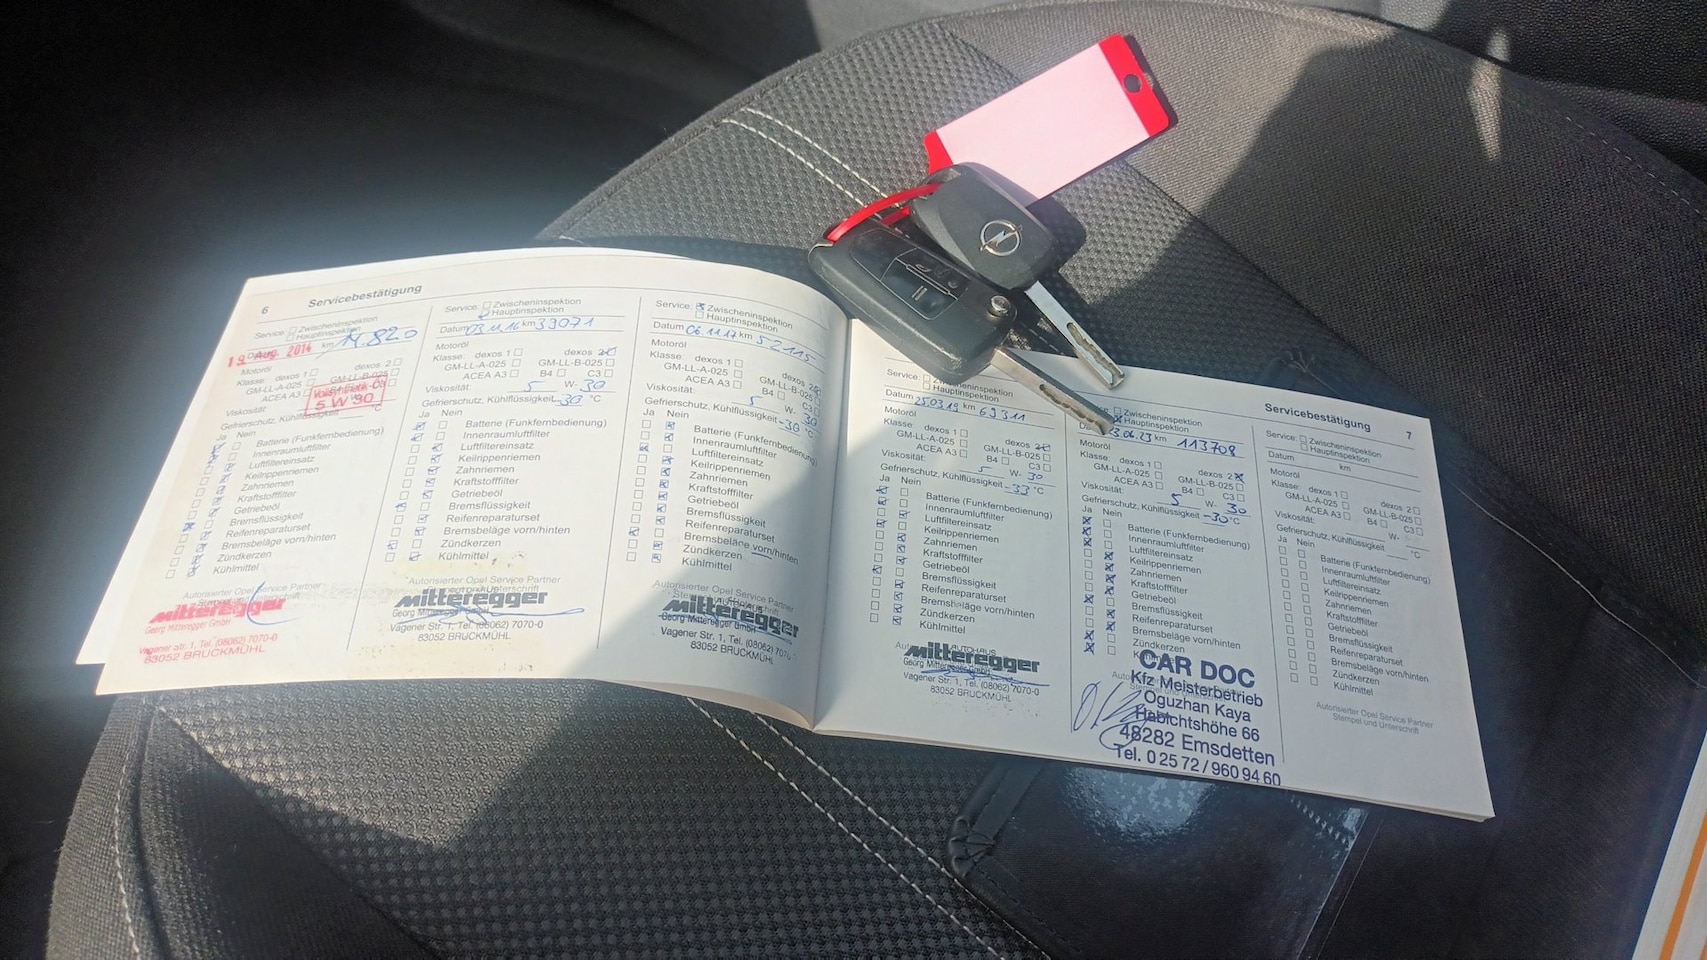 6
Servicebestätigung
Service: Zwischeninspektion
Hauptinspektion
19. Aug. 2014 km 14.820
Motoröl
Klasse: dexos 1 dexos 2
GM-LL-A-025 GM-LL-B-025
ACEA A3
5 W 30
Viskosität:
Gefrierschutz, Kühlflüssigkeit °C
Ja Nein
Batterie (Funkfernbedienung)
Innenraumluftfilter
Luftfiltereinsatz
Keilrippenriemen
Zahnriemen
Kraftstofffilter
Getriebeöl
Bremsflüssigkeit
Reifenreparaturset
Bremsbeläge vorn/hinten
Zündkerzen
Kühlmittel
Autorisierter Opel Service Partner
mitteregger
Georg Mitteregger GmbH
Vagener Str. 1, Tel. (08062) 7070-0
83052 BRUCKMÜHL
Service: Zwischeninspektion
Hauptinspektion
Datum 03 11 16 km 39071
Motoröl
Klasse: dexos 1 dexos 2
GM-LL-A-025 GM-LL-B-025
ACEA A3 B4 C3
Viskosität: 5 W- 30
Gefrierschutz, Kühlflüssigkeit -33 °C
Ja Nein
Batterie (Funkfernbedienung)
Innenraumluftfilter
Luftfiltereinsatz
Keilrippenriemen
Zahnriemen
Kraftstofffilter
Getriebeöl
Bremsflüssigkeit
Reifenreparaturset
Bremsbeläge vorn/hinten
Zündkerzen
Kühlmittel
Autorisierter Opel Service Partner
mitteregger
Georg Mitteregger GmbH
Vagener Str. 1, Tel. (08062) 7070-0
83052 BRUCKMÜHL
Service: Zwischeninspektion
Hauptinspektion
Datum 06 11 17 km 52115
Motoröl
Klasse: dexos 1 dexos 2
GM-LL-A-025 GM-LL-B-025
ACEA A3 B4 C3
Viskosität: 5 W- 30
Gefrierschutz, Kühlflüssigkeit -30 °C
Ja Nein
Batterie (Funkfernbedienung)
Innenraumluftfilter
Luftfiltereinsatz
Keilrippenriemen
Zahnriemen
Kraftstofffilter
Getriebeöl
Bremsflüssigkeit
Reifenreparaturset
Bremsbeläge vorn/hinten
Zündkerzen
Kühlmittel
Autorisierter Opel Service Partner
AUTOHAUS
mitteregger
Georg Mitteregger GmbH
Vagener Str. 1, Tel. (08062) 7070-0
83052 BRUCKMÜHL
Zwischeninspektion
Hauptinspektion
Datum 25.03.19 km 69311
Motoröl
Klasse: dexos 1 dexos 2
GM-LL-A-025 GM-LL-B-025
ACEA A3 B4 C3
Viskosität: 5 W- 30
Gefrierschutz, Kühlflüssigkeit -33 °C
Ja Nein
Batterie (Funkfernbedienung)
Innenraumluftfilter
Luftfiltereinsatz
Keilrippenriemen
Zahnriemen
Kraftstofffilter
Getriebeöl
Bremsflüssigkeit
Reifenreparaturset
Bremsbeläge vorn/hinten
Zündkerzen
Kühlmittel
AUTOHAUS
mitteregger
Georg Mitteregger GmbH
Vagener Str. 1, Tel. (08062) 7070-0
83052 BRUCKMÜHL
Zwischeninspektion
Hauptinspektion
3.06.23 km 113708
Motoröl
Klasse: dexos 1 dexos 2
GM-LL-A-025 GM-LL-B-025
ACEA A3 B4 C3
Viskosität: 5 W- 30
Gefrierschutz, Kühlflüssigkeit -30 °C
Ja Nein
Batterie (Funkfernbedienung)
Innenraumluftfilter
Luftfiltereinsatz
Keilrippenriemen
Zahnriemen
Kraftstofffilter
Getriebeöl
Bremsflüssigkeit
Reifenreparaturset
Bremsbeläge vorn/hinten
Zündkerzen
CAR DOC
Kfz Meisterbetrieb
Oguzhan Kaya
Habichtshöhe 66
48282 Emsdetten
Tel. 0 25 72 / 960 94 60
Servicebestätigung
7
Service: Zwischeninspektion
Hauptinspektion
Datum km
Motoröl
Klasse: dexos 1 dexos 2
GM-LL-A-025 GM-LL-B-025
ACEA A3 B4 C3
Viskosität: W-
Gefrierschutz, Kühlflüssigkeit °C
Ja Nein
Batterie (Funkfernbedienung)
Innenraumluftfilter
Luftfiltereinsatz
Keilrippenriemen
Zahnriemen
Kraftstofffilter
Getriebeöl
Bremsflüssigkeit
Reifenreparaturset
Bremsbeläge vorn/hinten
Zündkerzen
Kühlmittel
Autorisierter Opel Service Partner
Stempel und Unterschrift